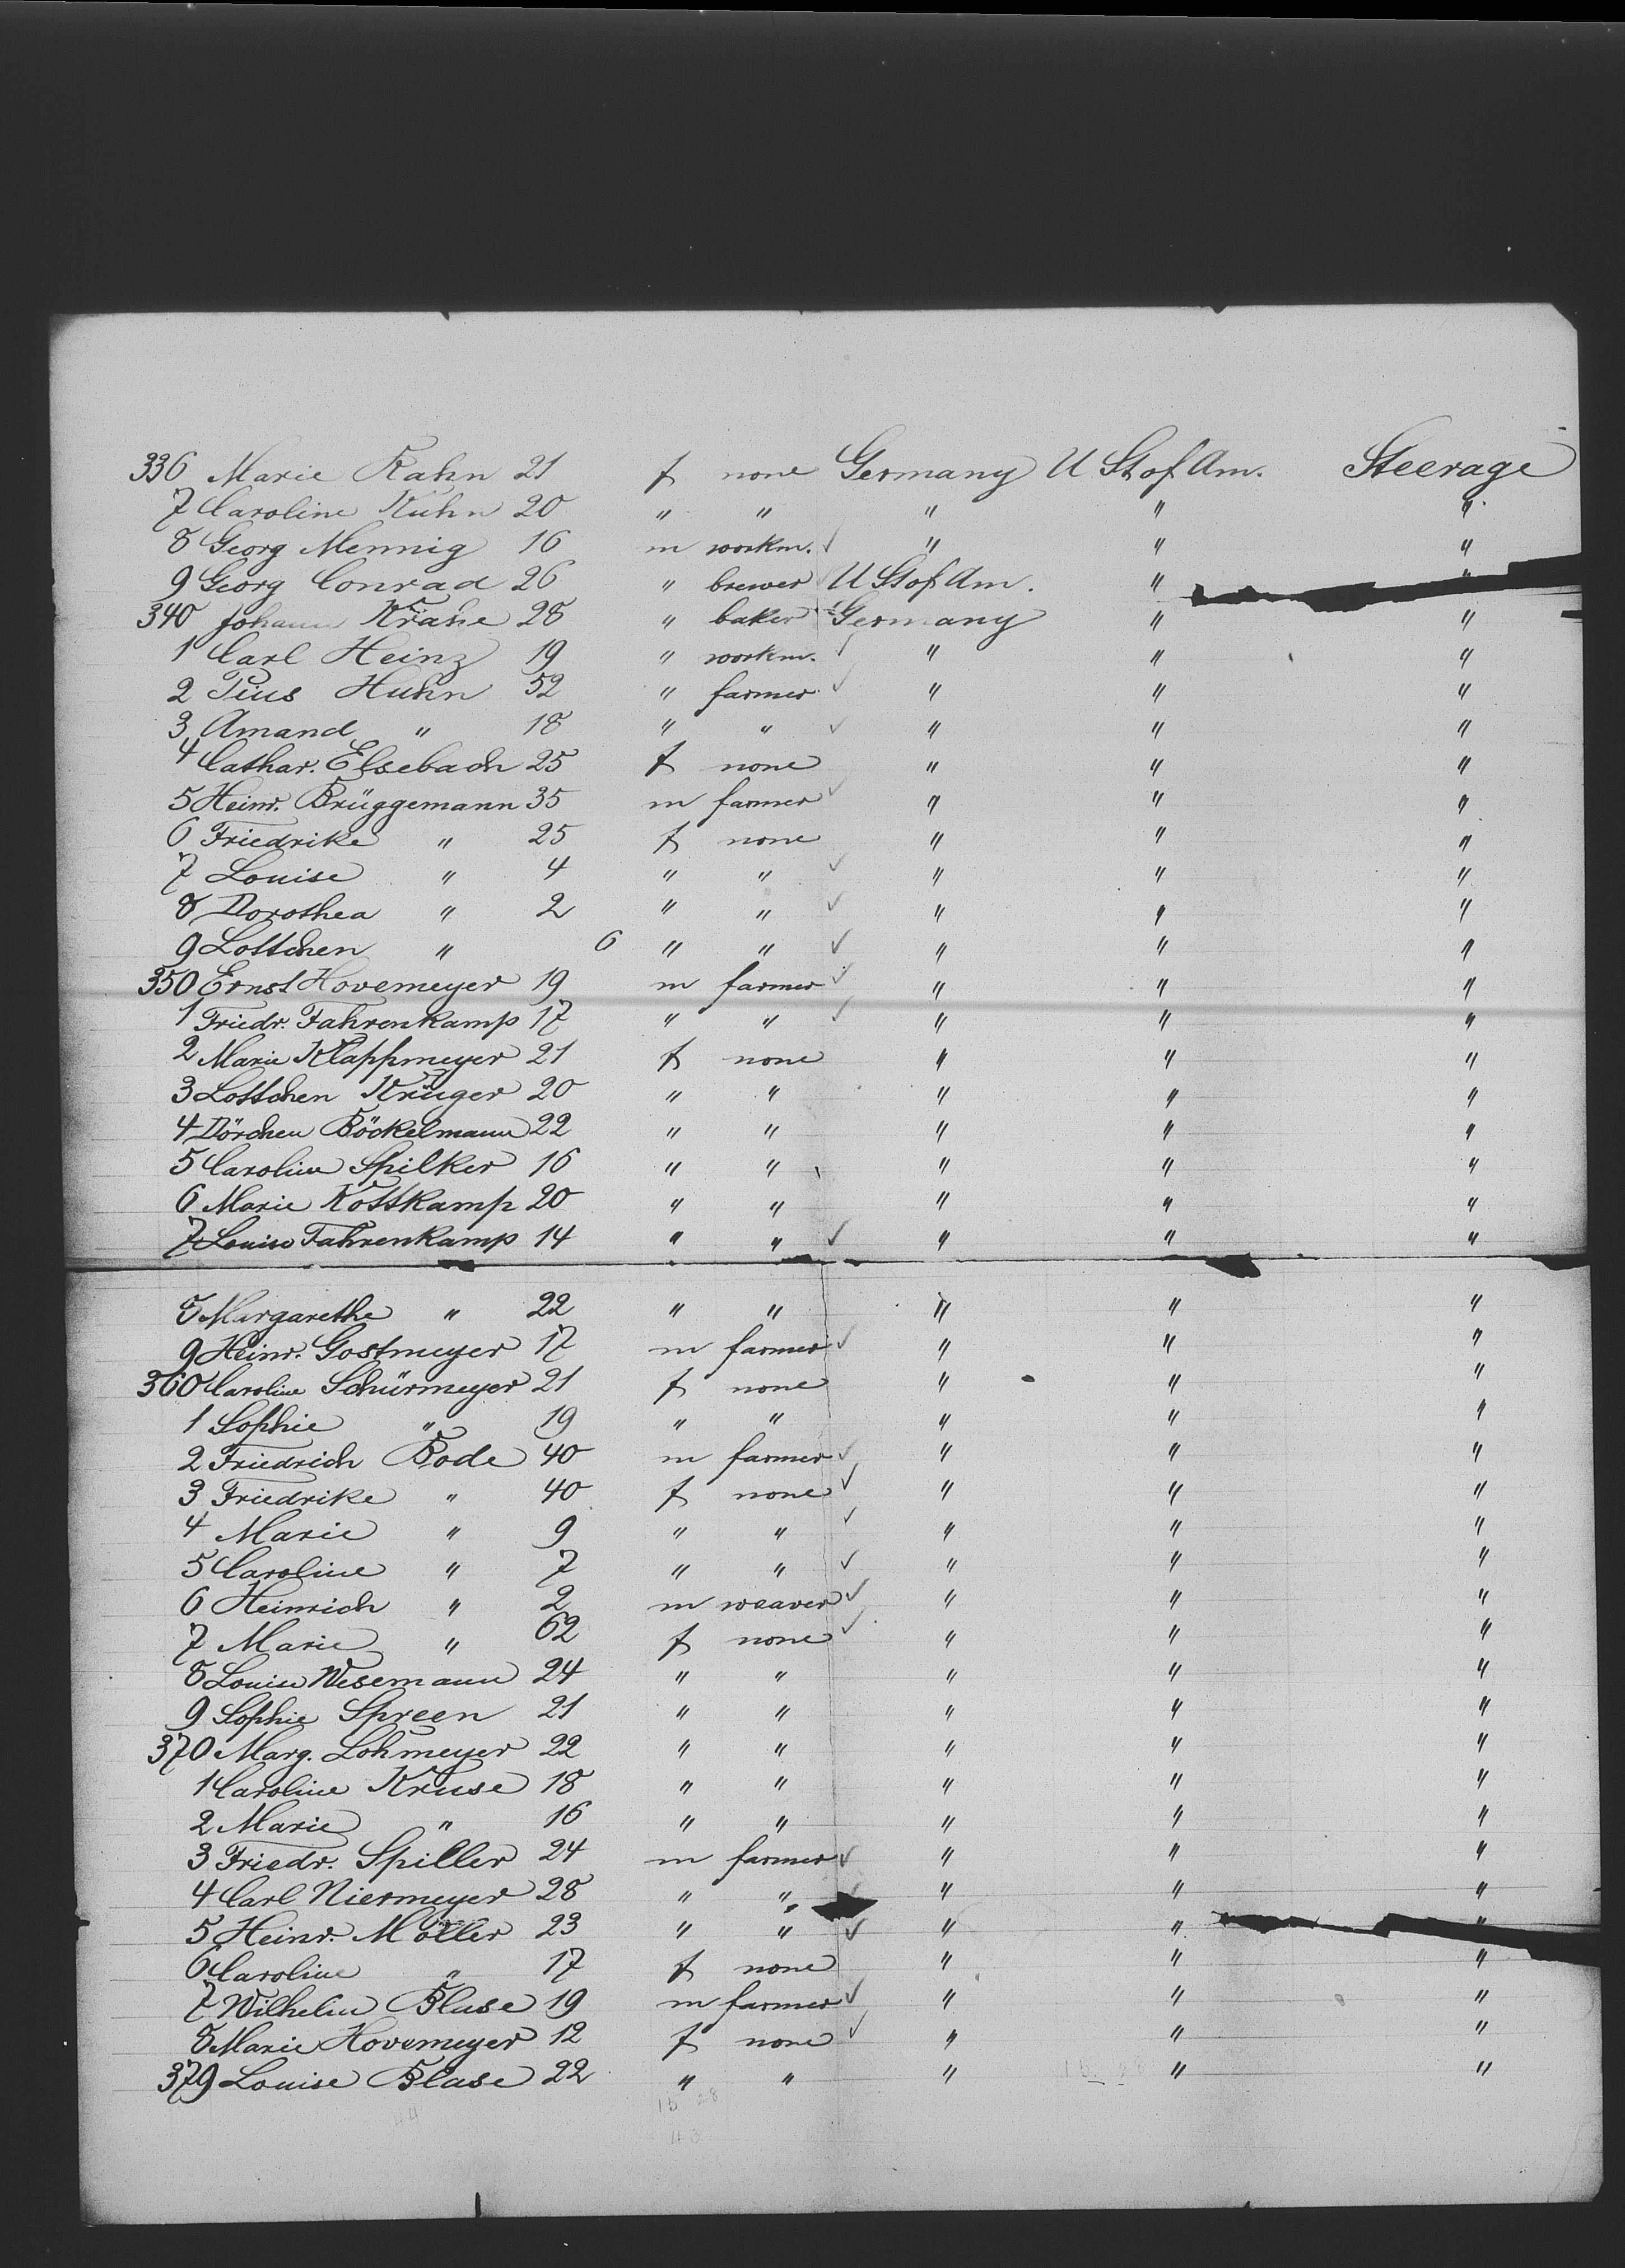 336 Marie Rahn 21 f none Germany U St of Am. Steerage
7 Caroline Kühn 20 " " " " "
8 Georg Mennig 16 m workm. " " "
9 Georg Conrad 26 " brewer U St of Am. " "
340 Johann Krähe 28 " baker Germany " "
1 Carl Heinz 19 " workm. " " "
2 Pius Huhn 52 " farmer " " "
3 Amand " 18 " " " " "
4 Cathar. Elsebach 25 f none " " "
5 Heinr. Brüggemann 35 m farmer " " "
6 Friedrike " 25 f none " " "
7 Louise " 4 " " " " "
8 Dorothea " 2 " " " " "
9 Lottchen " 6 " " " " "
350 Ernst Hovemeyer 19 m farmer " " "
1 Friedr. Fahrenkamp 17 " " " " "
2 Marie Klappmeyer 21 f none " " "
3 Lottchen Krüger 20 " " " " "
4 Dörchen Böckelmann 22 " " " " "
5 Caroline Spilker 16 " " " " "
6 Marie Kottkamp 20 " " " " "
7 Louise Fahrenkamp 14 " " " " "
8 Margarethe " 22 " " " " "
9 Heinr. Gostmeyer 17 m farmer " " "
360 Caroline Schürmeyer 21 f none " " "
1 Sophie " 19 " " " " "
2 Friedrich Bode 40 m farmer " " "
3 Friedrike " 40 f none " " "
4 Marie " 9 " " " " "
5 Caroline " 7 " " " " "
6 Heinrich " 2 m weaver " " "
7 Marie " 62 f none " " "
8 Louise Wesemann 24 " " " " "
9 Sophie Spreen 21 " " " " "
370 Marg. Lohmeyer 22 " " " " "
1 Caroline Kruse 18 " " " " "
2 Marie " 16 " " " " "
3 Friedr. Spiller 24 m farmer " " "
4 Carl Niermeyer 28 " " " " "
5 Heinr. Möller 23 " " " " "
6 Caroline " 17 f none " " "
7 Wilhelm Blase 19 m farmer " " "
8 Marie Hovemeyer 12 f none " " "
379 Louise Blase 22 " " " " "